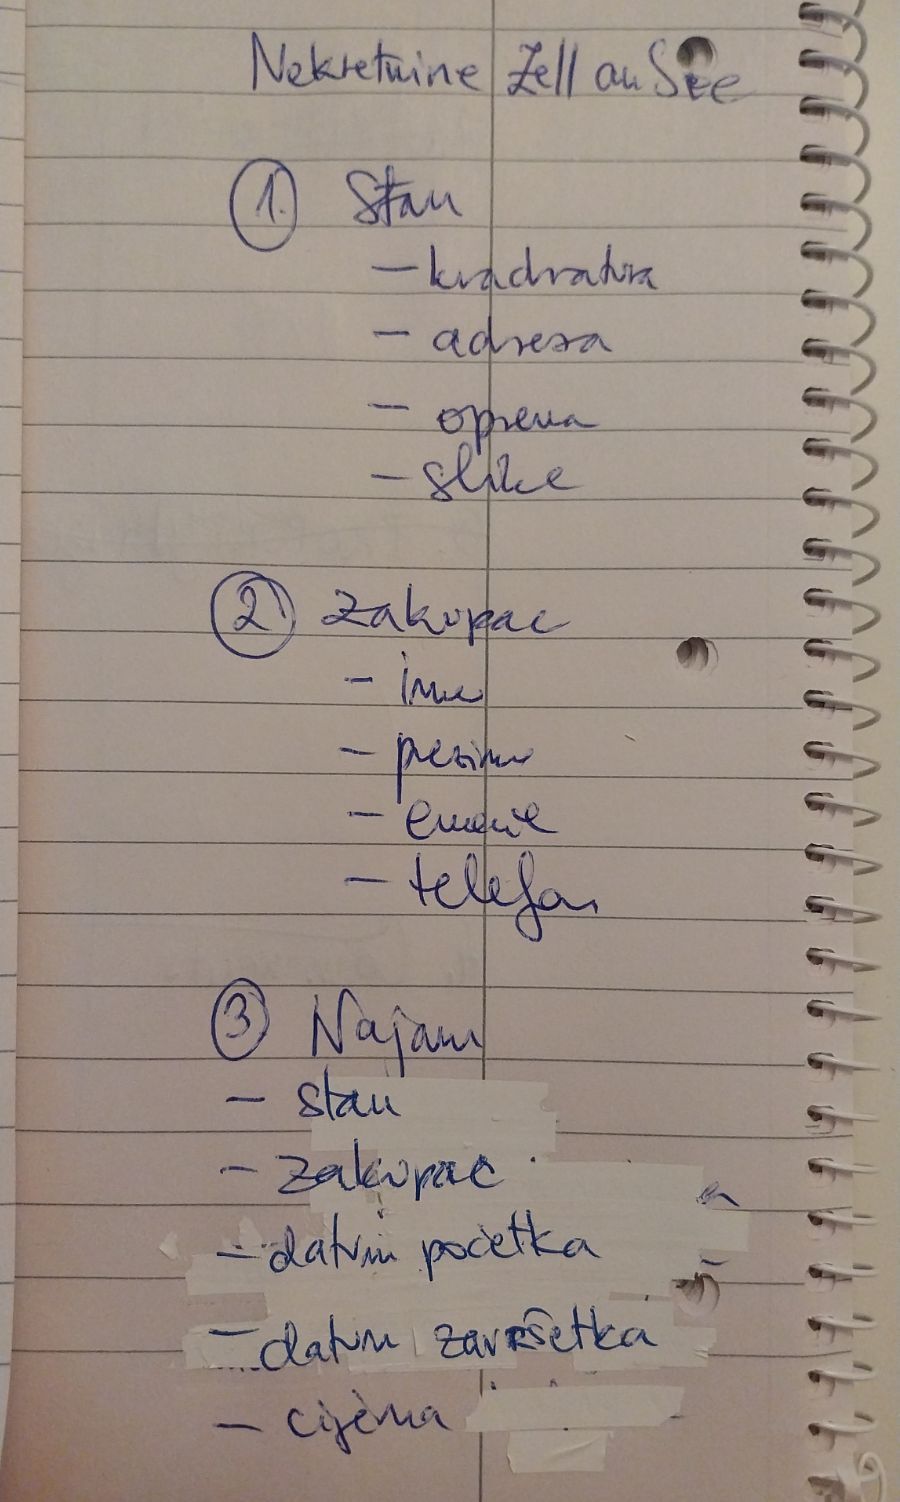 Nekretnine Zell am See
1. Stan
- kvadratura
- adresa
- oprema
- slike
2. Zakupac
- ime
- prezime
- email
- telefon
3 Najam
- stan
- zakupac
- datum početka
- datum završetka
- cijena